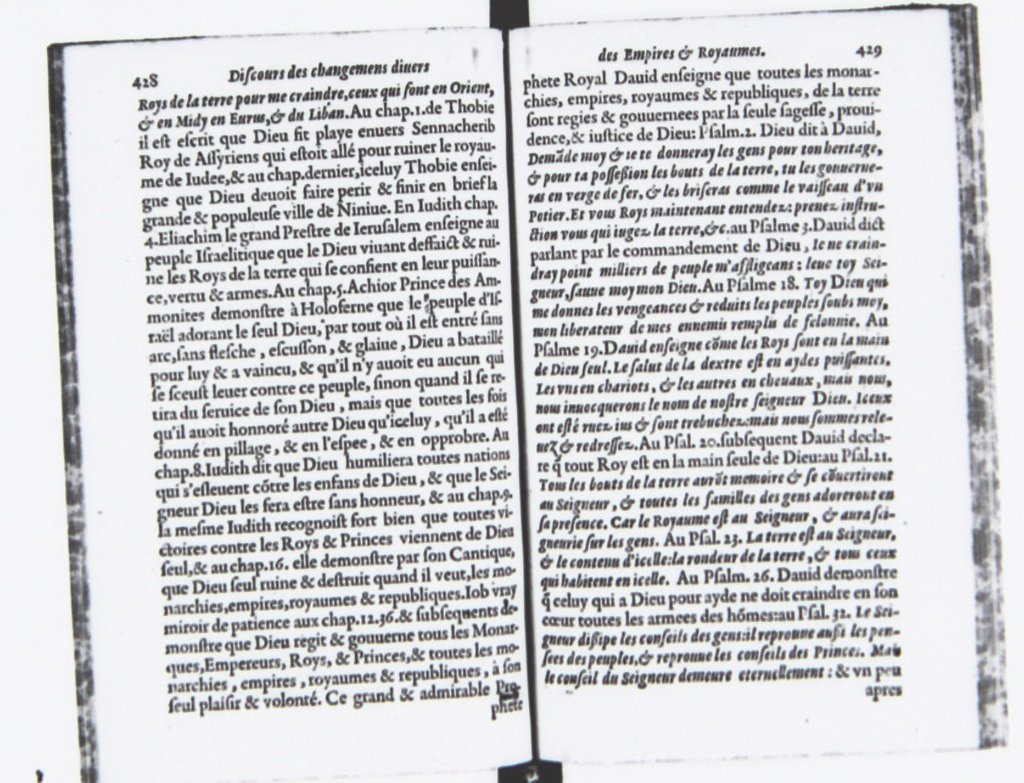 428
Discours des changemens diuers
Roys de la terre pour me craindre, ceux qui sont en Orient,
& en Midy en Eurus, & du Liban. Au chap. 1. de Thobie
il est escrit que Dieu fit playe enuers Sennacherib
Roy de Assyriens qui estoit allé pour ruiner le royau-
me de Iudee, & au chap. dernier, iceluy Thobie ensei-
gne que Dieu deuoit faire perir & finir en brief la
grande & populeuse ville de Niniue. En Iudith chap.
4. Eliachim le grand Prestre de Ierusalem enseigne au
peuple Israelitique que le Dieu viuant deffaict & rui-
ne les Roys de la terre qui se confient en leur puissan-
ce, vertu & armes. Au chap. 5. Achior Prince des Am-
monites demonstre à Holoferne que le peuple d'Is-
raël adorant le seul Dieu, par tout où il est entré sans
arc, sans flesche, escusson, & glaiue, Dieu a bataillé
pour luy & a vaincu, & qu'il n'y auoit eu aucun qui
se sceust leuer contre ce peuple, sinon quand il se re-
tira du seruice de son Dieu, mais que toutes les fois
qu'il auoit honnoré autre Dieu qu'iceluy, qu'il a esté
donné en pillage, & en l'espee, & en opprobre. Au
chap. 8. Iudith dit que Dieu humiliera toutes nations
qui s'esleuent cōtre les enfans de Dieu, & que le Sei-
gneur Dieu les fera estre sans honneur, & au chap. 9.
la mesme Iudith recognoist fort bien que toutes vi-
ctoires contre les Roys & Princes viennent de Dieu
seul, & au chap. 16. elle demonstre par son Cantique,
que Dieu seul ruine & destruit quand il veut, les mo-
narchies, empires, royaumes & republiques. Iob vray
miroir de patience aux chap. 12. 36. & subseqents de-
monstre que Dieu regit & gouuerne tous les Monar-
ques, Empereurs, Roys, & Princes, & toutes les mo-
narchies, empires, royaumes & republiques, à son
seul plaisir & volonté. Ce grand & admirable Pro-
phete
des Empires & Royaumes.
429
phete Royal Dauid enseigne que toutes les monar-
chies, empires, royaumes & republiques, de la terre
sont regies & gouuernees par la seule sagesse, proui-
dence, & iustice de Dieu: Psalm. 2. Dieu dit à Dauid,
Demāde moy & ie te donneray les gens pour ton heritage,
& pour ta possession les bouts de la terre, tu les gouuerne-
ras en verge de fer, & les briseras comme le vaisseau d'vn
Potier. Et vous Roys maintenant entendez: prenez instru-
ction vous qui iugez la terre, &c. au Psalme 3. Dauid dict
parlant par le commandement de Dieu, Ie ne crain-
dray point milliers de peuple m'affligeans: leue toy Sei-
gneur, sauue moy mon Dieu. Au Psalme 18. Toy Dieu qui
me donnes les vengeances & reduits les peuples soubs moy,
mon liberateur de mes ennemis remplis de felonnie. Au
Psalme 19. Dauid enseigne cōme les Roys sont en la main
de Dieu seul. Le salut de la dextre est en aydes puissantes,
Les vns en chariots, & les autres en cheuaux, mais nous,
nous inuocquerons le nom de nostre seigneur Dieu. Iceux
ont esté ruez ius & sont trebuchez: mais nous sommes rele-
uez & redressez. Au Psal. 20. subsequent Dauid decla-
re q̄ tout Roy est en la main seule de Dieu: au Psal. 21.
Tous les bouts de la terre aurōt memoire & se cōuertiront
au Seigneur, & toutes les familles des gens adoreront en
sa presence. Car le Royaume est au Seigneur, & aura sei-
gneurie sur les gens. Au Psal. 23. La terre est au Seigneur,
& le contenu d'icelle: la rondeur de la terre, & tous ceux
qui habitent en icelle. Au Psalm. 26. Dauid demonstre
q̄ celuy qui a Dieu pour ayde ne doit craindre en son
cœur toutes les armees des hōmes: au Psal. 32. Le Sei-
gneur dissipe les conseils des gens: il reprouue aussi les pen-
sees des peuples, & reprouue les conseils des Princes. Mais
le conseil du Seigneur demeure eternellement: & vn peu
apres